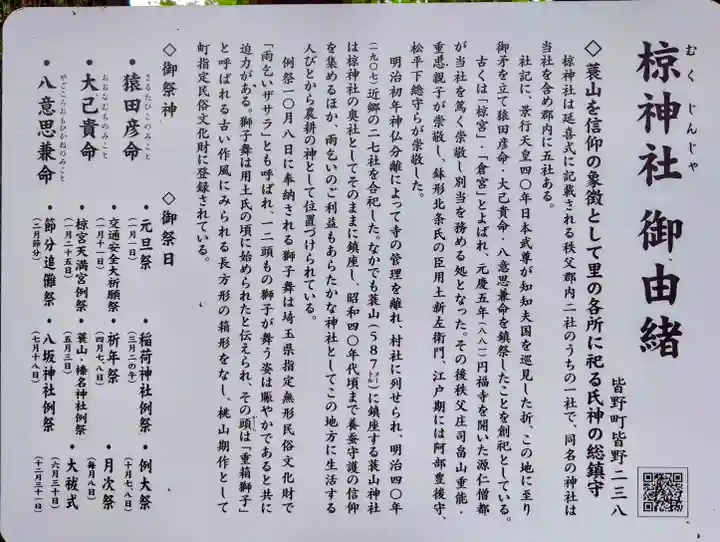 椋神社 御由緒
むくじんじゃ
皆野町皆野二三八
◇蓑山を信仰の象徴として里の各所に祀る氏神の総鎮守
椋神社は延喜式に記載される秩父郡内二社のうちの一社で、同名の神社は
当社を含め郡内に五社ある。
社記に、景行天皇四〇年日本武尊が知知夫国を巡見した折、この地に至り
御矛を立て猿田彦命・大己貴命・八意思兼命を鎮祭したことを創祀としている。
古くは「椋宮」・「倉宮」とよばれ、元慶五年（八八一）円福寺を開いた源仁僧都
が当社を篤く崇敬し別当を務める処となった。その後秩父庄司畠山重能・
重忠親子が崇敬し、鉢形北条氏の臣用土新左衛門、江戸期には阿部豊後守、
松平下総守らが崇敬した。
明治初年神仏分離によって寺の管理を離れ、村社に列せられ、明治四〇年
（一九〇七）近郷の二七社を合祀した。なかでも蓑山（587㍍）に鎮座する蓑山神社
は椋神社の奥社としてそのままに鎮座し、昭和四〇年代頃まで養蚕守護の信仰
を集めるほか、雨乞いのご利益もあらたかな神社としてこの地方に生活する
人びとから農耕の神として位置づけられている。
例祭一〇月八日に奉納される獅子舞は埼玉県指定無形民俗文化財で
「雨乞いザサラ」とも呼ばれ、一二頭もの獅子が舞う姿は賑やかであると共に
迫力がある。獅子舞は用土氏の頃に始められたと伝えられ、その頭は「重箱獅子」
と呼ばれる古い作風にみられる長方形の箱形をなし、桃山期作として
町指定民俗文化財に登録されている。
◇御祭神
・猿田彦命
さるたひこのみこと
・大己貴命
おおなむちのみこと
・八意思兼命
やごころおもひかねのみこと
◇御祭日
・元旦祭
（一月一日）
・交通安全大祈願祭
（一月十一日）
・椋宮天満宮例祭
（一月二十五日）
・節分追儺祭
（二月節分）
・稲荷神社例祭
（三月二の午）
・祈年祭
（四月七、八日）
・蓑山・榛名神社例祭
（五月三日）
・八坂神社例祭
（七月十八日）
・例大祭
（十月七、八日）
・月次祭
（毎月八日）
・大祓式
（六月三十日）
（十二月三十一日）